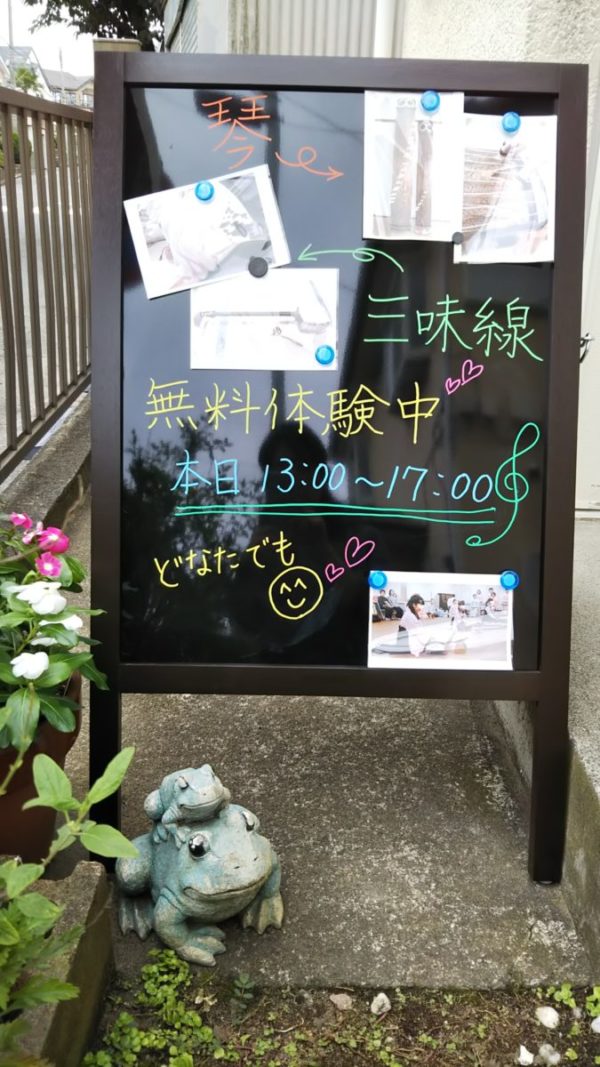 琴
三味線
無料体験中
本日 13:00〜17:00
どなたでも